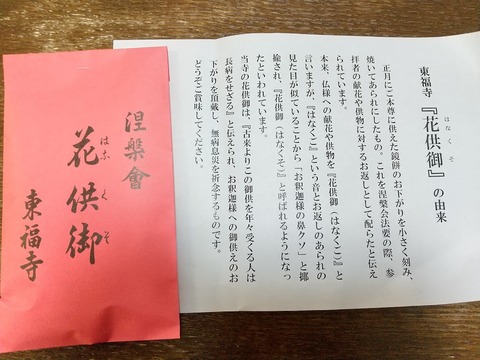 東福寺『花供御』の由来
はなくそ
正月にご本尊に供えた鏡餅のお下がりを小さく刻み、
焼いてあられにしたもの。これを涅槃会法要の際、参
拝者の献花や供物に対するお返しとして配らたと伝え
られています。
本来、仏様への献花や供物を『花供御（はなくご）』と
言いますが、『はなくご』という音とお返しのあられの
見た目が似ていることから「お釈迦様の鼻クソ」と揶
揄され、『花供御（はなくそ）』と呼ばれるようになっ
たといわれています。
当寺の花供御は、『古来よりこの御供を年々受くる人は
長病をせざる』と伝えられ、お釈迦様への御供えのお
下がりを頂戴し、無病息災を祈念するものです。
どうぞご賞味してください。
涅槃會
花供御
はなくそ
東福寺